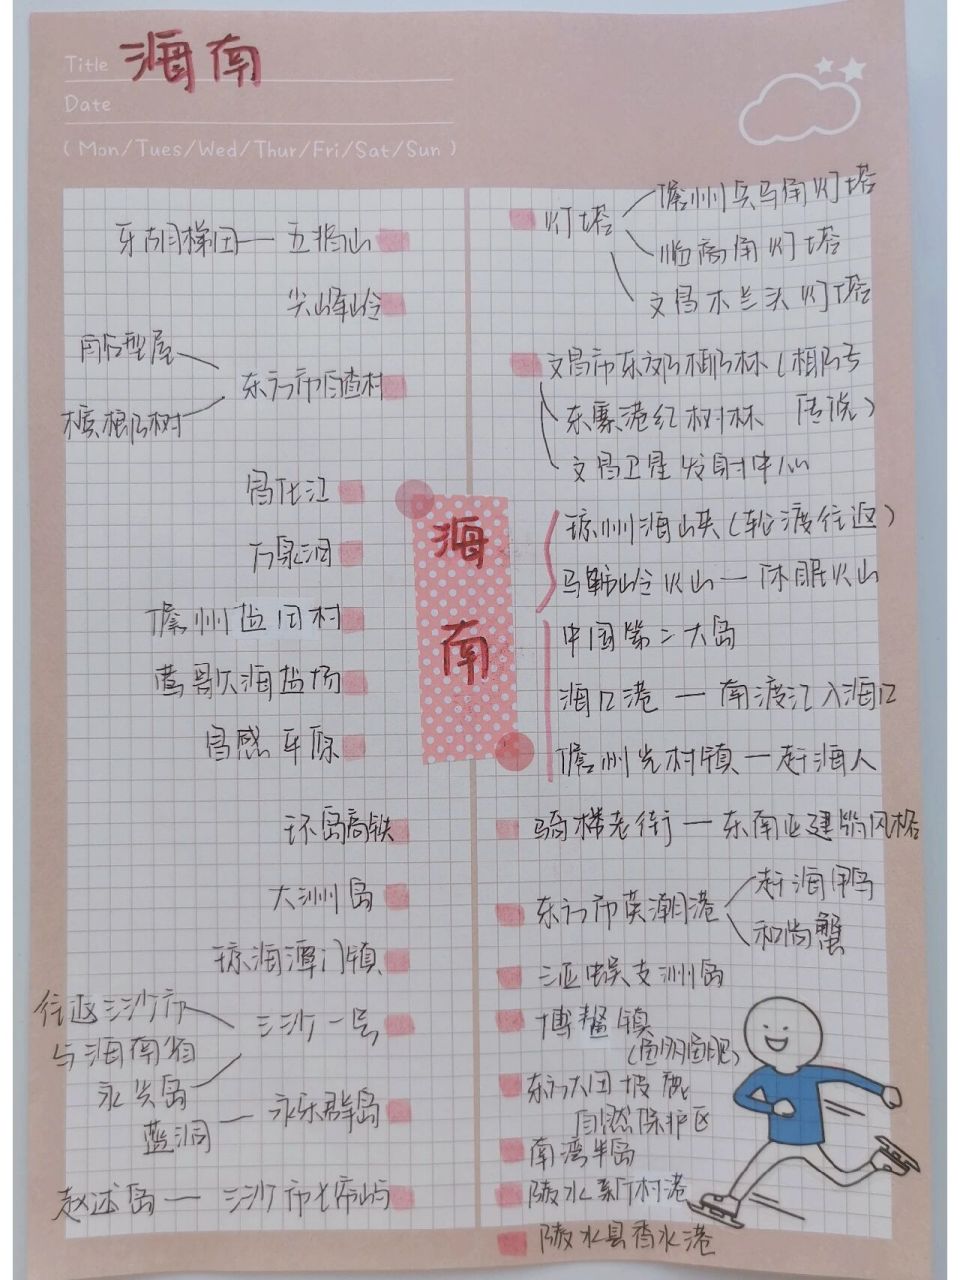 Title 海南
Date
( Mon/Tues/Wed/Thur/Fri/Sat/Sun )
牙胡梯田 — 五指山
尖峰岭
船型屋
东方市白查村
槟榔树
昌化江
万泉河
儋州盐田村
莺歌大海盐场
昌感平原
环岛高铁
大洲岛
琼海潭门镇
往返三沙市
与海南省
三沙一号
永兴岛
蓝洞
永乐群岛
赵述岛 — 三沙市七连屿
海
南
灯塔
儋州兵马角灯塔
临高角灯塔
文昌木兰头灯塔
文昌市东郊椰林(椰子
传说)
东寨港红树林
文昌卫星发射中心
琼州海峡(轮渡往返)
马鞍岭火山 — 休眠火山
中国第二大岛
海口港 — 南渡江入海口
儋州光村镇 — 赶海人
骑楼老街 — 东南亚建筑风格
东方市英潮港
赶海鸭
和尚蟹
三亚蜈支洲岛
博鳌镇
东方大田坡鹿
自然保护区
南湾半岛
陵水新村港
陵水县香水港